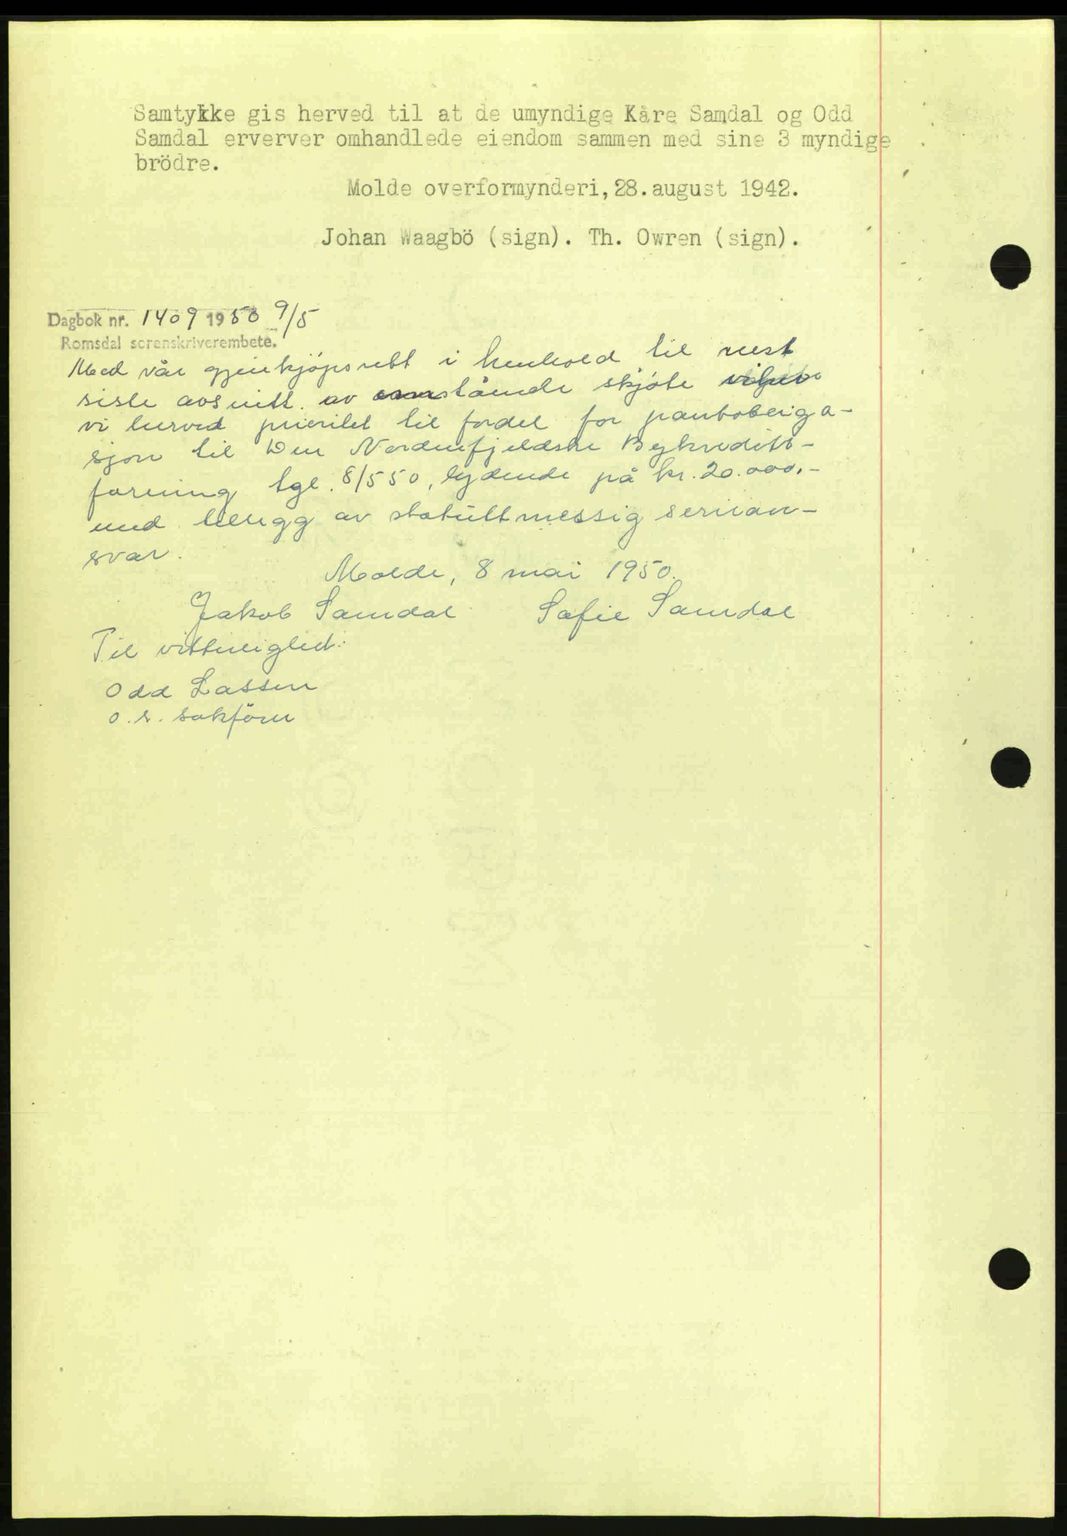 Samtykke gis herved til at de umyndige Kåre Samdal og Odd
Samdal erverver omhandlede eiendom sammen med sine 3 myndige
brödre.
Molde overformynderi, 28. august 1942.
Johan Waagbö (sign). Th. Owren (sign).
Dagbok nr. 1409 1950 9/5
Romsdal sorenskriverembete.
Med vår gjenkjøpsrett i henhold til nest
siste avsnitt av omstående skjøte viker
vi herved prioritet til fordel for pantobliga-
sjon til Den Nordenfjeldske Bykreditt-
forening tgl. 8/5 50, lydende på kr. 20.000,-
med tillegg av statuttmessig seriean-
svar.
Molde, 8 mai 1950.
Jakob Samdal Sofie Samdal
Til vitterlighet:
Odd Lassen
o.r. sakfører